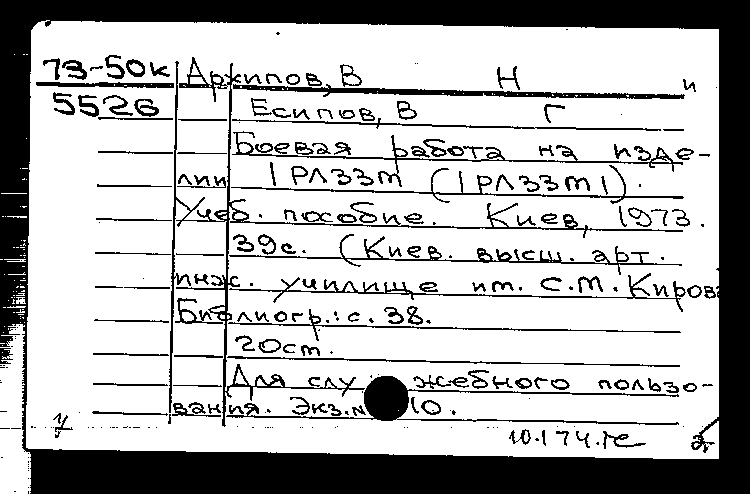 73-50к Архипов, В Н и
5526 Есипов, В Г
Боевая работа на изде-
лии 1РЛ33м (1РЛ33м1).
Учеб. пособие. Киев, 1973.
39с. (Киев. высш. арт.
инж. училище им. С.М. Кирова
Библиогр.: с. 38.
20см.
Для служебного пользо-
вания. Экз.№ 10.
у 10.174.